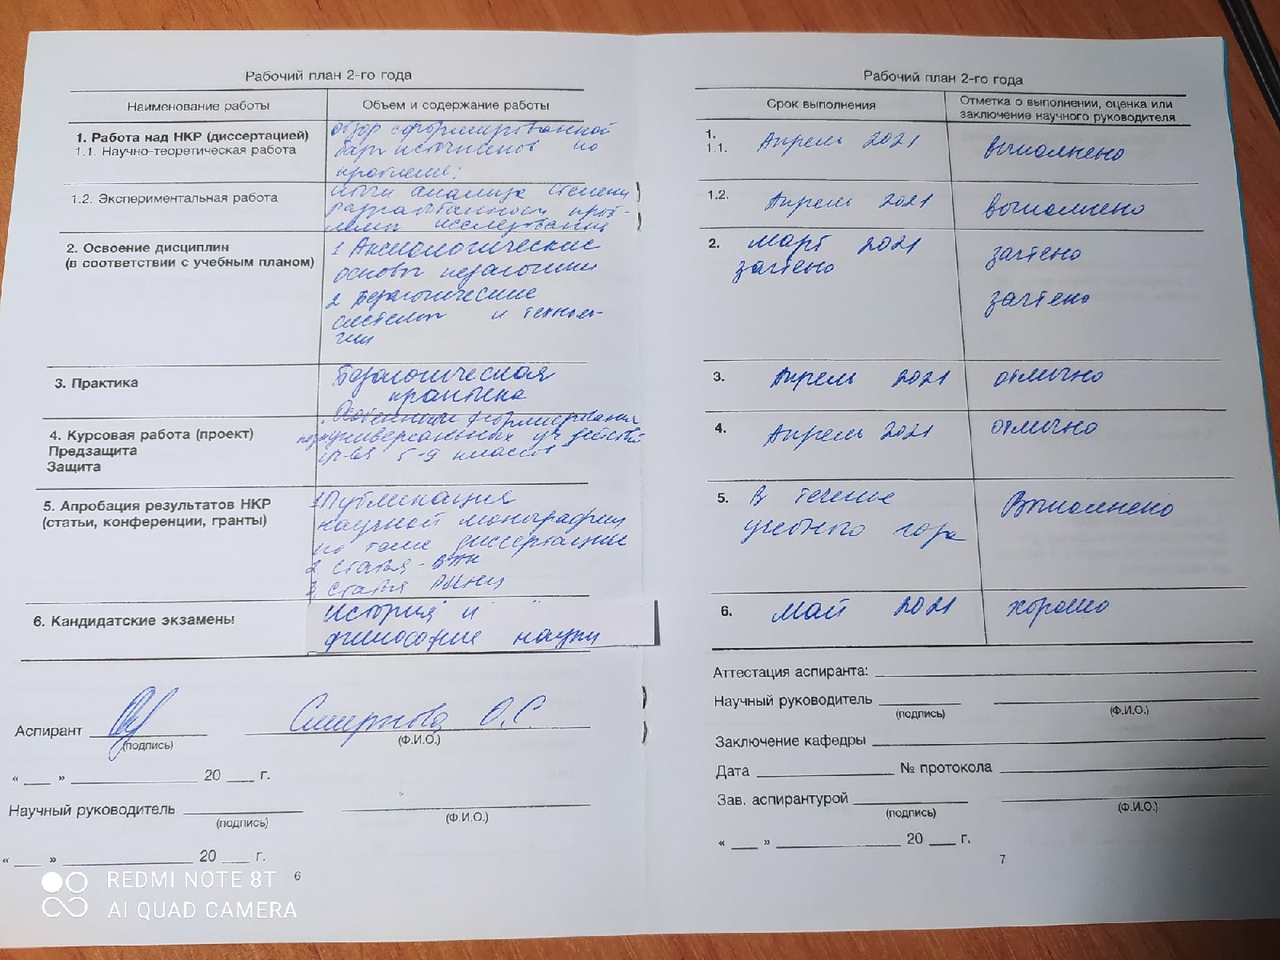 Рабочий план 2-го года
Наименование работы
Объем и содержание работы
1. Работа над НКР (диссертацией)
1.1. Научно-теоретическая работа
обзор сформированной
базы источников по
проблеме;
1.2. Экспериментальная работа
итоги анализа степени
разработанности проб-
лемы исследования
2. Освоение дисциплин
(в соответствии с учебным планом)
1 Аксиологические
основы педагогики
2 Педагогические
системы и техноло-
гии
3. Практика
Педагогическая
практика
4. Курсовая работа (проект)
Предзащита
Защита
Особенности формирования
универсальных уч действий
5-9 классов
5. Апробация результатов НКР
(статьи, конференции, гранты)
1 Публикация
научной монографии
по теме диссертации
2 статья - ВАК
3 статья РИНЦ
6. Кандидатские экзамены
История и
философия науки
Аспирант
Смирнова О.С
(подпись)
(Ф.И.О.)
« ___ » ____________ 20 ___ г.
Научный руководитель
(подпись)
(Ф.И.О.)
« ___ » ____________ 20 ___ г.
6
REDMI NOTE 8T
AI QUAD CAMERA
Рабочий план 2-го года
Срок выполнения
Отметка о выполнении, оценка или
заключение научного руководителя
1.
1.1.
Апрель 2021
выполнено
1.2.
Апрель 2021
выполнено
2.
Март 2021
зачтено
зачтено
зачтено
3.
Апрель 2021
отлично
4.
Апрель 2021
отлично
5.
В течение
учебного года
Выполнено
6.
Май 2021
хорошо
Аттестация аспиранта:
Научный руководитель
(подпись)
(Ф.И.О.)
Заключение кафедры
Дата ____________ № протокола
Зав. аспирантурой
(подпись)
(Ф.И.О.)
« ___ » ____________ 20 ___ г.
7